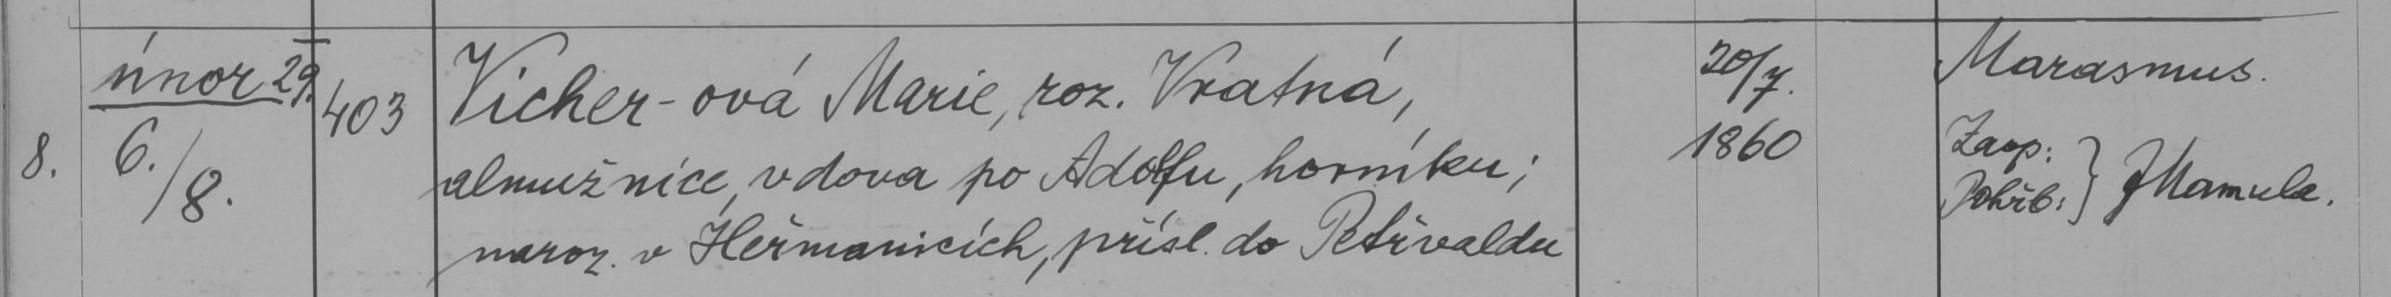 únor 29.
8.
6./8.
403
Vicher-ová Marie, roz. Vratná,
almužnice, vdova po Adolfu, horníku;
naroz. v Heřmanicích, přísl. do Petřvaldu
20/7.
1860
Marasmus.
Zaop:
Pohřb: } JMamula.